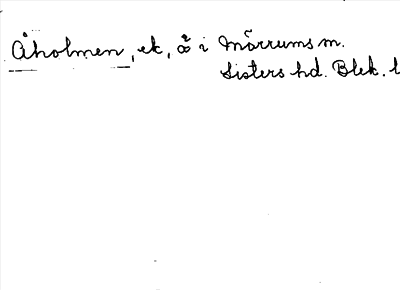 Åholmen, ek, ö i Mörrums m.
Listers hd. Blek. l